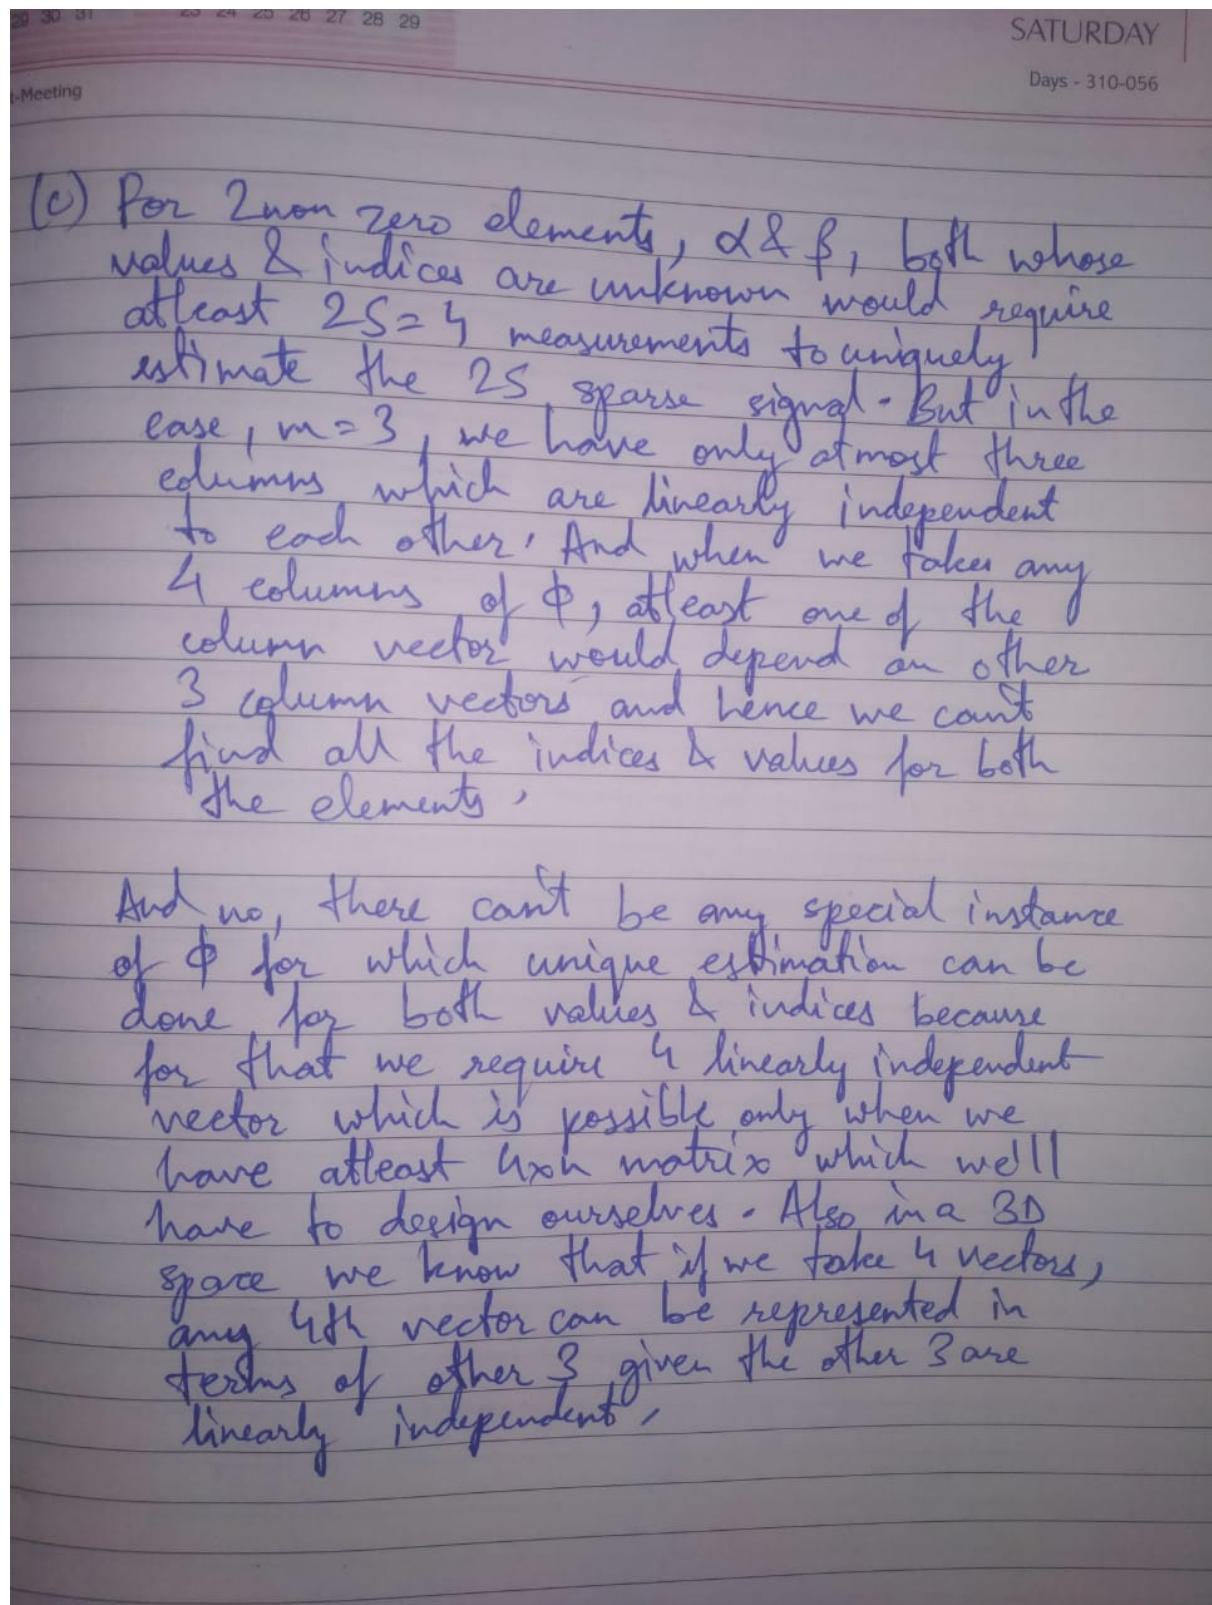 29 30 31
23 24 25 26 27 28 29
SATURDAY
Days - 310-056
-Meeting
(c) For 2 non zero elements, α & β, both whose
values & indices are unknown would require
atleast 2S = 4 measurements to uniquely
estimate the 2S sparse signal. But in the
case, m = 3, we have only atmost three
columns which are linearly independent
to each other. And when we takes any
4 columns of ϕ, atleast one of the
column vector would depend on other
3 column vectors and hence we can't
find all the indices & values for both
the elements.
And no, there can't be any special instance
of ϕ for which unique estimation can be
done for both values & indices because
for that we require 4 linearly independent
vector which is possible only when we
have atleast 4xn matrix which we'll
have to design ourselves. Also in a 3D
space we know that if we take 4 vectors,
any 4th vector can be represented in
terms of other 3 given the other 3 are
linearly independent.